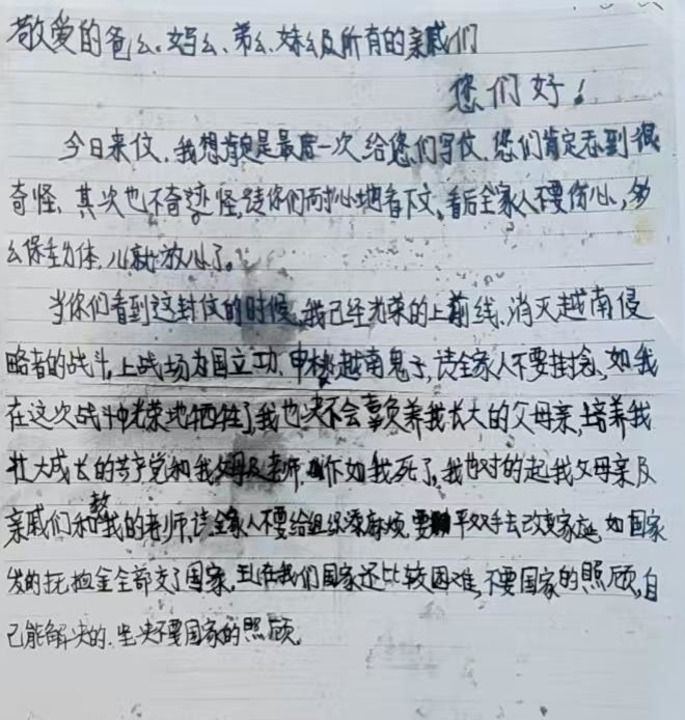 敬爱的爸么、妈么、弟么、妹么及所有的亲戚们
您们好！
今日来信，我想肯定是最后一次给您们写信，您们肯定看到很
奇怪、其次也不奇怪，请你们耐心地看下文，看后全家人不要伤心，多
么保重身体，儿就放心了。
当你们看到这封信的时候，我已经光荣的上前线，消灭越南侵
略者的战斗，上战场为国立功，申格越南鬼子，请全家人不要挂念，如我
在这次战斗中光荣地牺牲了，我也决不会辜负养我长大的父母亲，培养我
壮大成长的共产党和我父母及老师，作如我死了，我也对的起我父母亲及
亲戚们和教我的老师，请全家人不要给组织添麻烦，要平双手去改变家庭，如国家
发的抚恤金全部交了国家，现在我们国家还比较困难，不要国家的照顾，自
己能解决的，坚决不要国家的照顾。